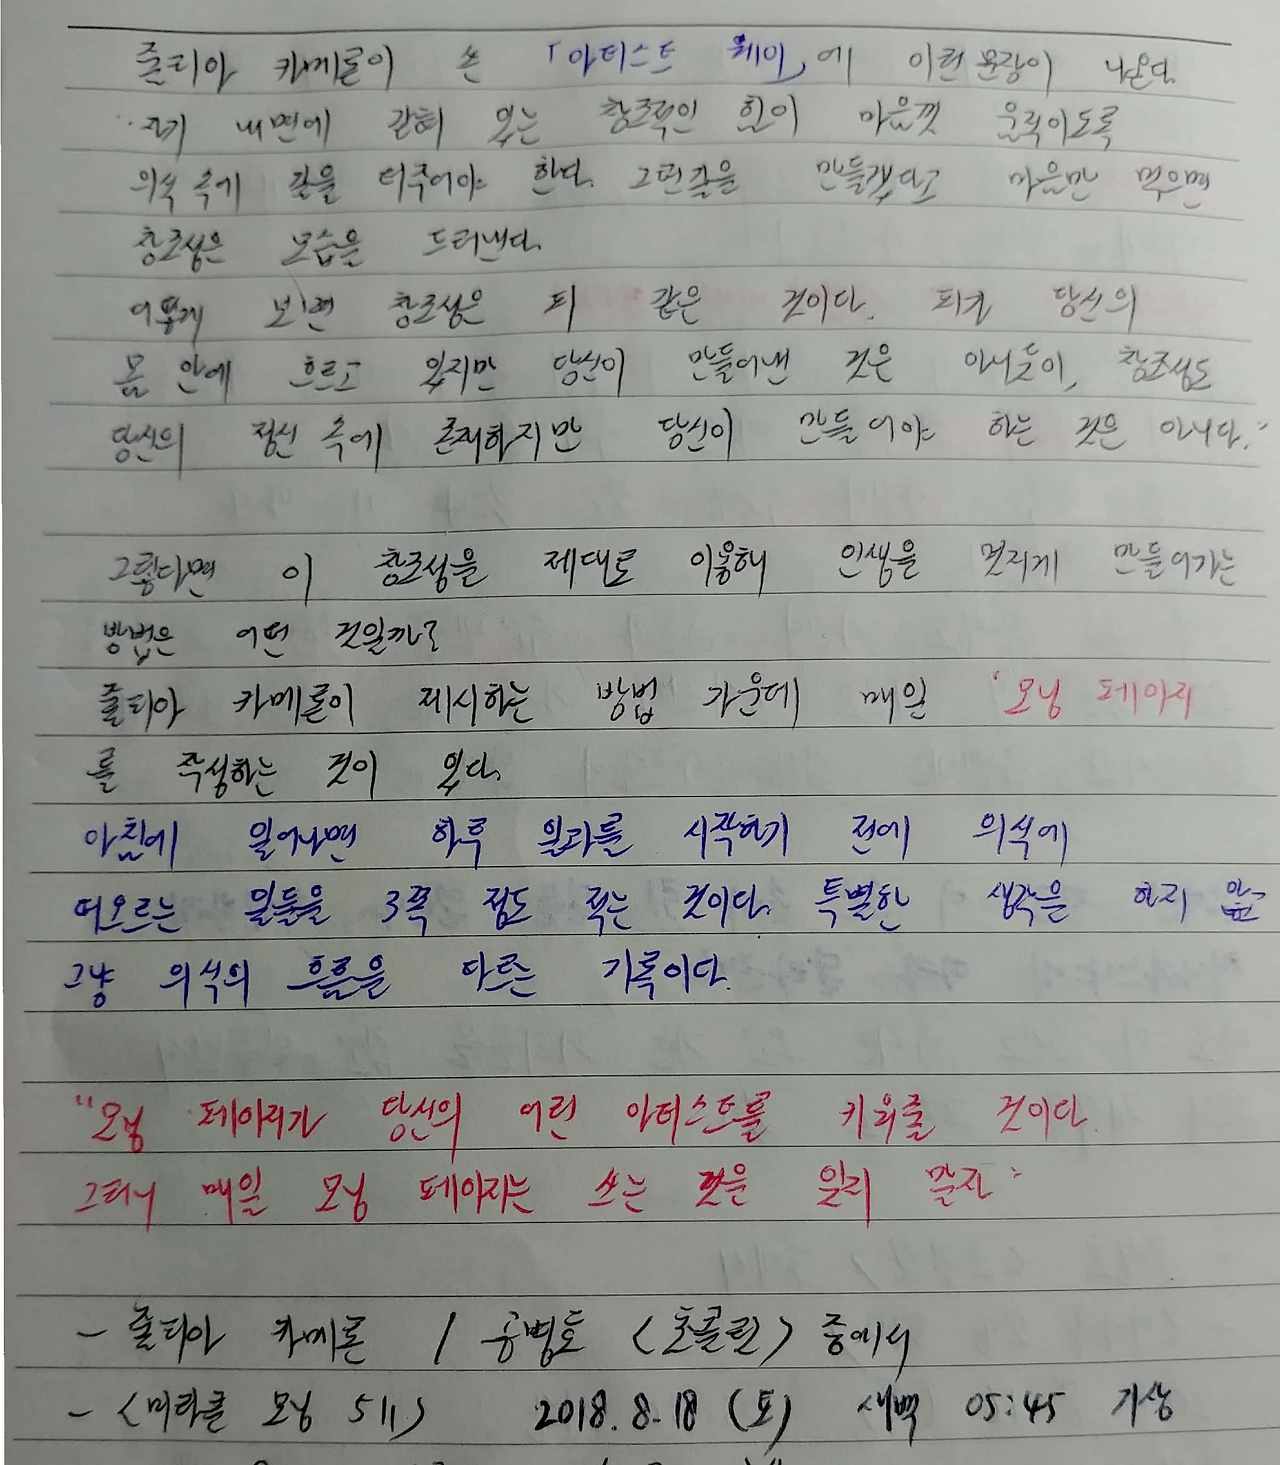 줄리아 카메론이 쓴 「아티스트 웨이」에 이런 문장이 나온다.
"자기 내면에 갇혀 있는 창조적인 힘이 마음껏 움직이도록
의식 속에 길을 터주어야 한다. 그런길을 만들겠다고 마음만 먹으면
창조성은 모습을 드러낸다.
어떻게 보면 창조성은 피 같은 것이다. 피가 당신의
몸 안에 흐르고 있지만 당신이 만들어낸 것은 아니듯이, 창조성도
당신의 정신 속에 존재하지만 당신이 만들어야 하는 것은 아니다."
그렇다면 이 창조성을 제대로 이용해 인생을 멋지게 만들어가는
방법은 어떤 것일까?
줄리아 카메론이 제시하는 방법 가운데 매일 '모닝 페이지
를 작성하는 것이 있다.
아침에 일어나면 하루 일과를 시작하기 전에 의식에
떠오르는 일들을 3쪽 정도 적는 것이다. 특별한 생각을 하지 않고
그냥 의식의 흐름을 따르는 기록이다.
"모닝 페이지가 당신의 어린 아티스트를 키워줄 것이다.
그러니 매일 모닝 페이지는 쓰는 것을 잊지 말자."
- 줄리아 카메론 / 공병호 <초콜릿> 중에서
- <미라클 모닝 511> 2018.8.18 (토) 새벽 05:45 기상